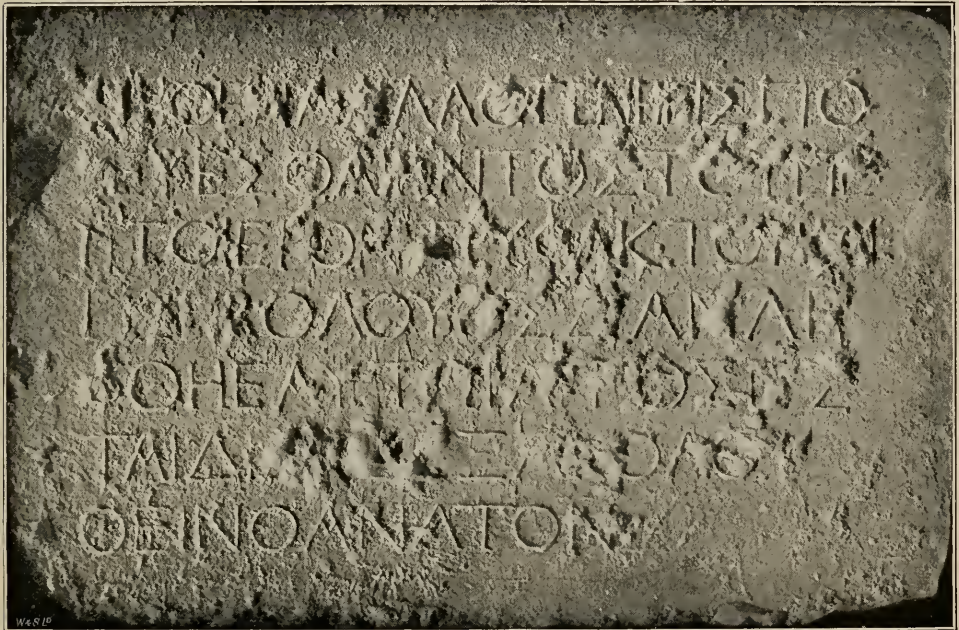 ΜΗΘΕΝΑΑΛΛΟΓΕΝΗΕΙΣΠΟ
ΡΕΥΕΣΘΑΙΕΝΤΟΣΤΟΥΠΕ
ΡΙΤΟΙΕΡΟΝΤΡΥΦΑΚΤΟΥΚΑΙ
ΠΕΡΙΒΟΛΟΥΟΣΔΑΝΛΗ
ΦΘΗΕΑΥΤΩΙΑΙΤΙΟΣΕΣ
ΤΑΙΔΙΑΤΟΕΞΑΚΟΛΟΥ
ΘΕΙΝΘΑΝΑΤΟΝ
W&S Lᴰ